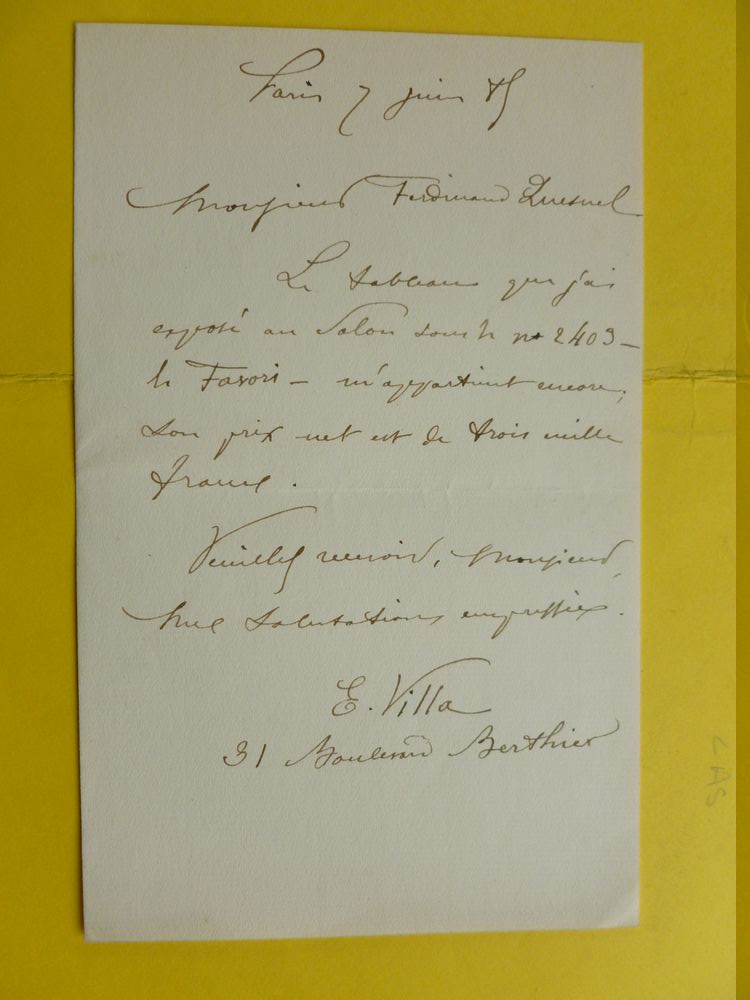 Paris 7 juin 85
Monsieur Ferdinand Quesnel
Le tableau que j'ai
exposé au Salon sous le no 2403 —
le Favori — m'appartient encore;
son prix net est de trois mille
francs.
Veuillez recevoir, Monsieur,
mes salutations empressées.
E. Villa
31 Boulevard Berthier
LAS